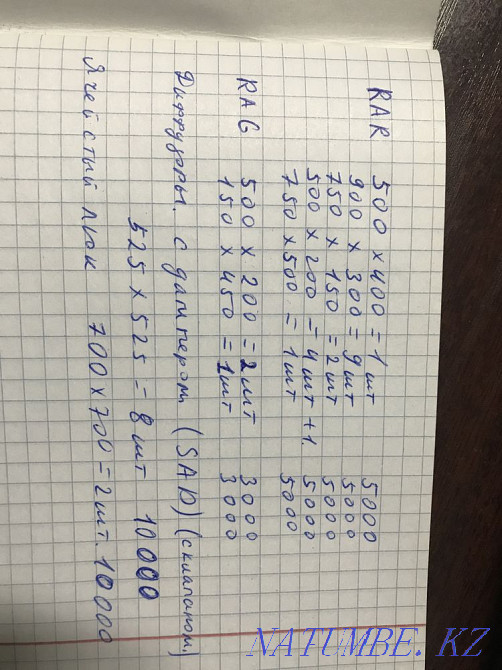 RAR 500 x 400 = 1 шт 5000
900 x 300 = 9 шт 5000
750 x 150 = 2 шт 5000
500 x 200 = 4 шт + 1. 5000
750 x 500 = 1 шт 5000
RAG 500 x 200 = 2 шт 3000
150 x 450 = 1 шт 3000
Диффузоры. с дампером (SAD) (с клапаном)
525 x 525 = 8 шт 10000
Ячеистый люк 700 x 700 = 2 шт. 10000
NATUMBE.KZ